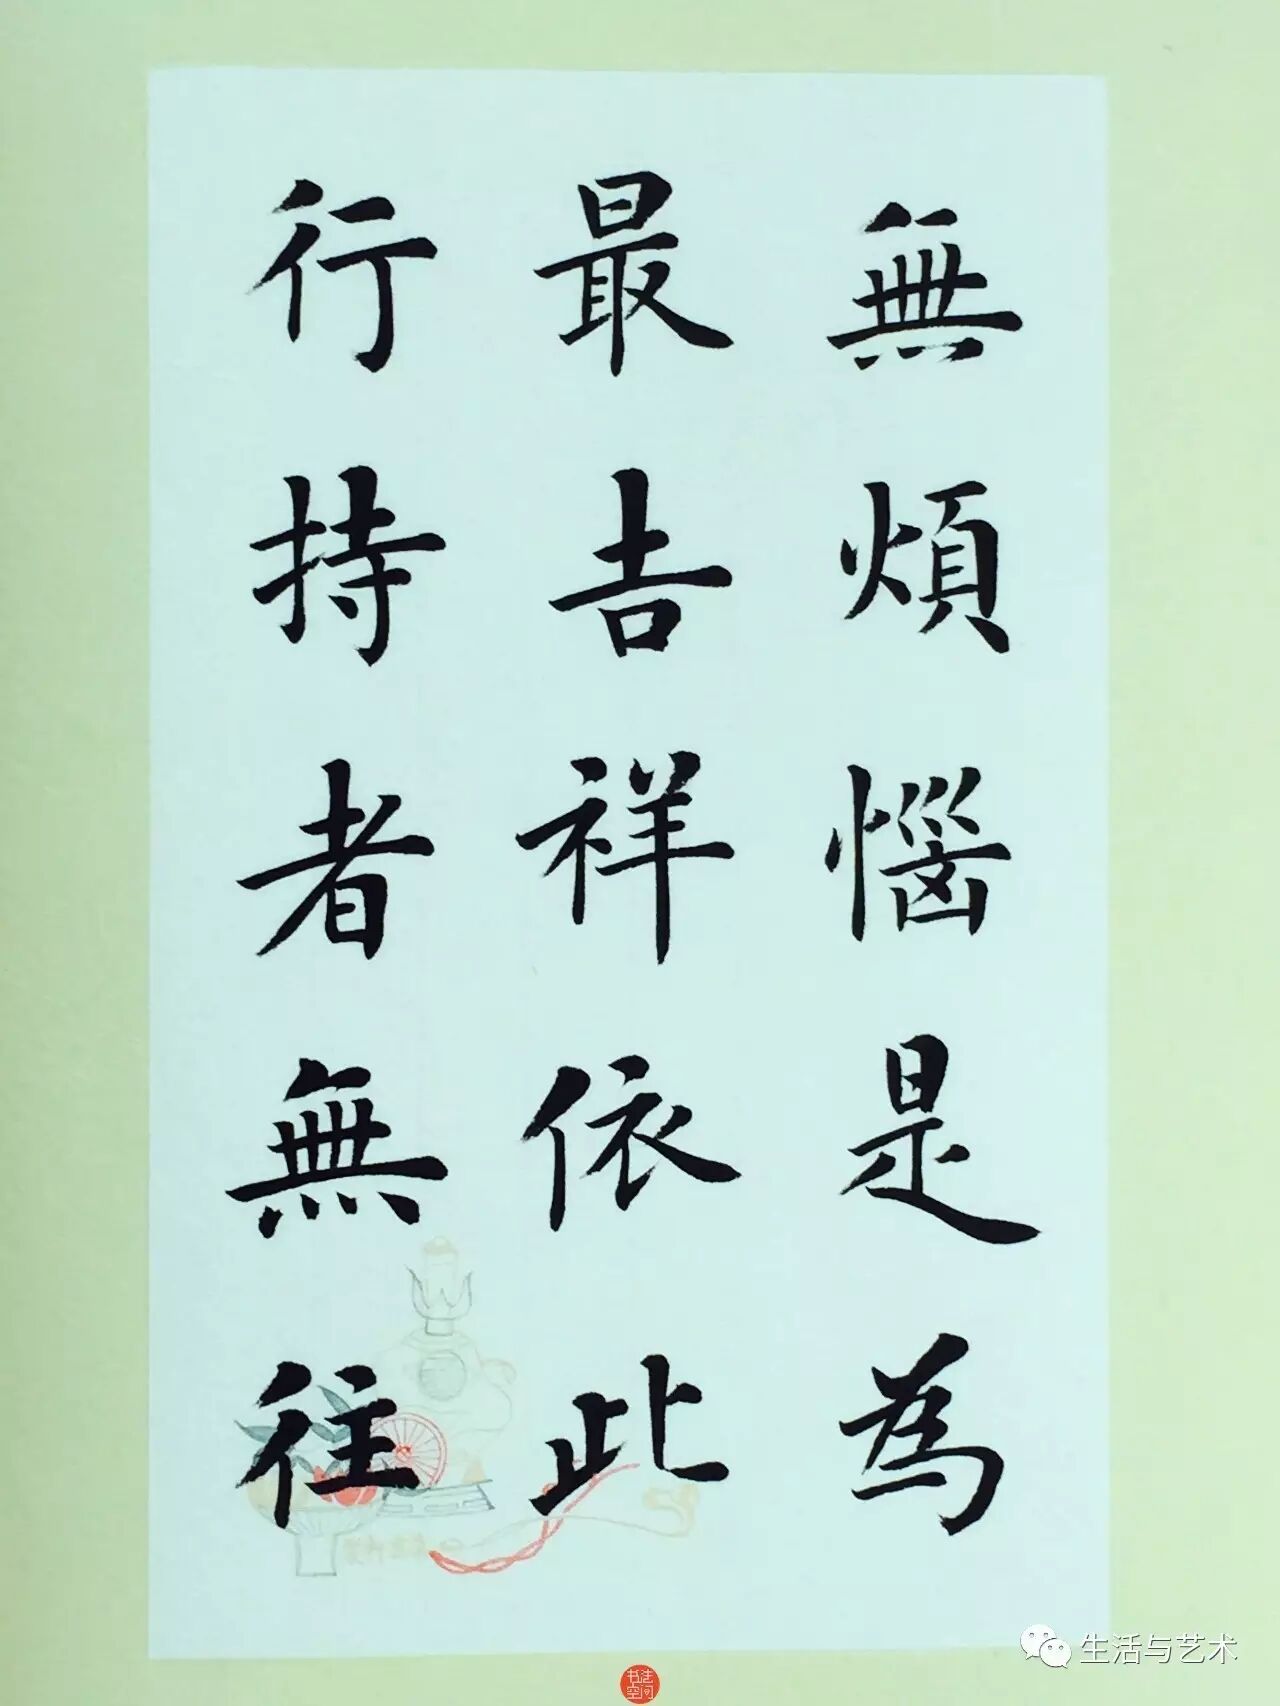 無煩惱是為
最吉祥依此
行持者無往
生活与艺术
书法空间